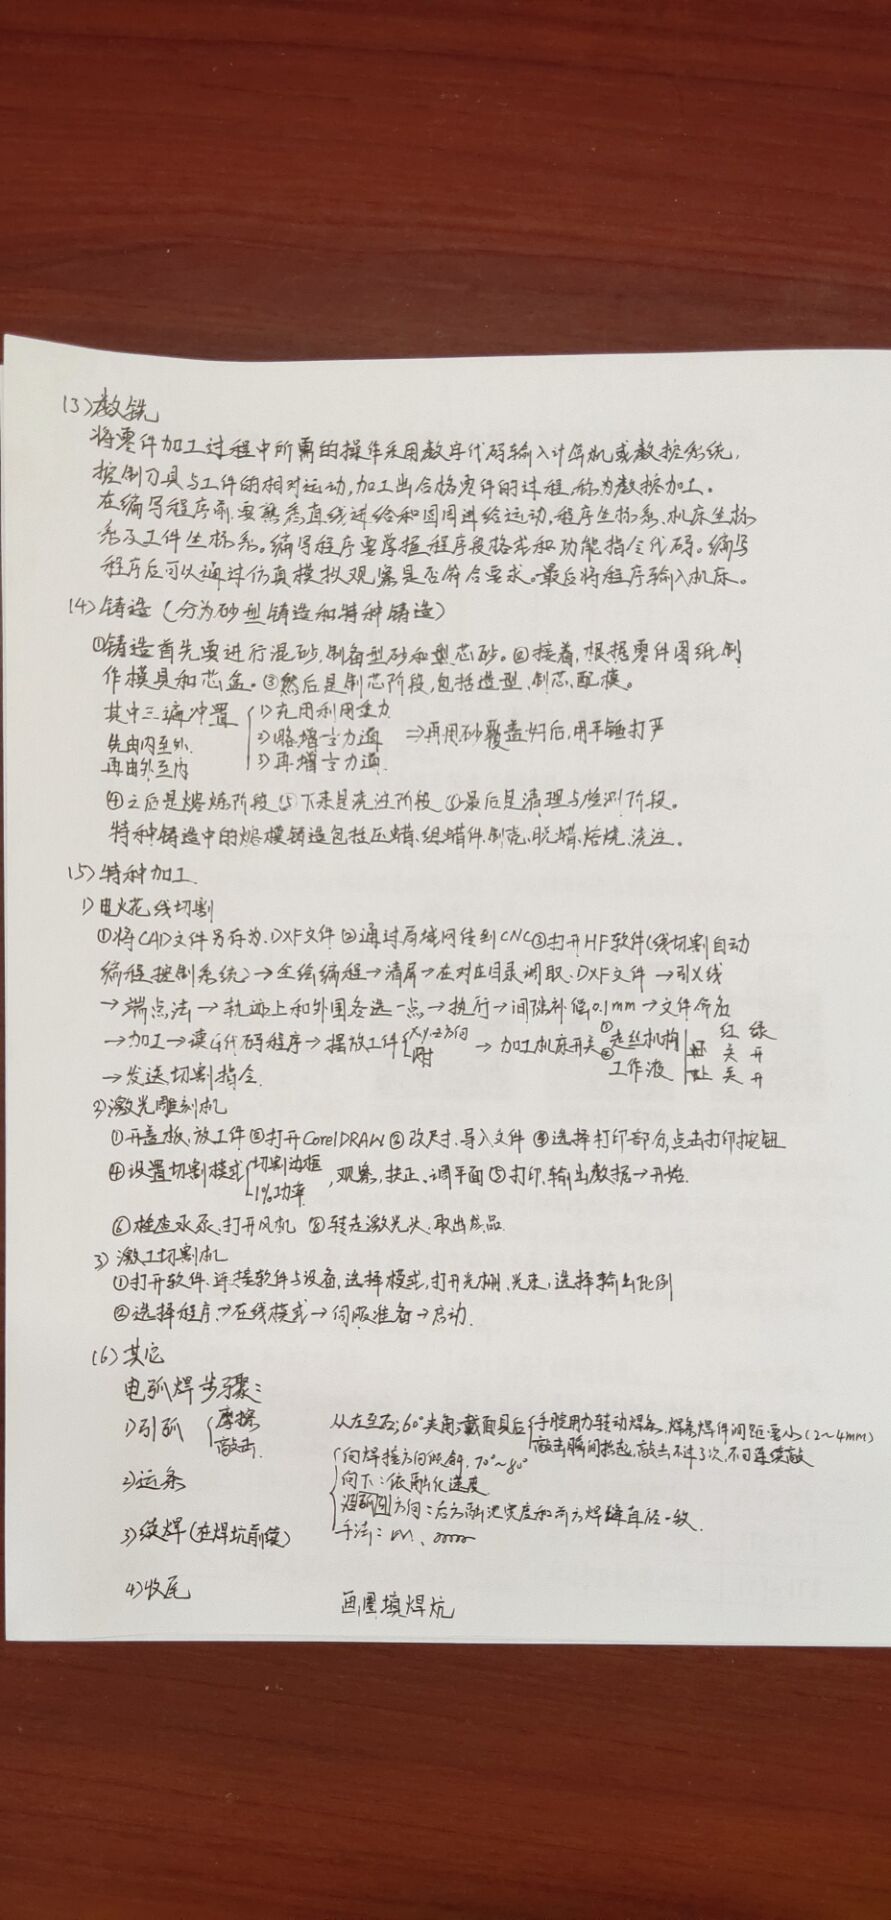 (3)数铣
将零件加工过程中所需的操作采用数字代码输入计算机或数控系统,
控制刀具与工件的相对运动,加工出合格零件的过程,称为数控加工。
在编写程序前,要熟悉直线进给和圆周进给运动,程序坐标系,机床坐标
系及工件坐标系。编写程序要掌握程序段格式和功能指令代码。编写
程序后可以通过仿真模拟观察是否符合要求。最后将程序输入机床。
(4)铸造(分为砂型铸造和特种铸造)
①铸造首先要进行混砂,制备型砂和型芯砂。②接着,根据零件图纸制
作模具和芯盒。③然后是制芯阶段,包括造型、制芯、配模。
其中三遍冲置 1)先用利用重力
先由内至外 2)略增力道 ⇒再用砂覆盖好后,用平锤打严
再由外至内 3)再增力道
④之后是熔炼阶段 ⑤下来是浇注阶段 ⑥最后是清理与检测阶段。
特种铸造中的熔模铸造包括压蜡、组蜡件、制壳、脱蜡、焙烧、浇注。
(5)特种加工
1)电火花线切割
①将CAD文件另存为.DXF文件 ②通过局域网传到CNC ③打开HF软件(线切割自动
编程控制系统)→全绘编程→清屏→在对应目录调取.DXF文件→引入线
→端点法→轨迹上和外围各选一点→执行→间隙补偿0.1mm→文件命名
→加工→读G代码程序→摆放工件 X,Y,Z方向 →加工机床开关 ①走丝机构 红 绿
关 开
→发送切割指令 ②工作液 关 开
2)激光雕刻机
①开盖板,放工件 ②打开CorelDRAW ③改尺寸、导入文件 ④选择打印部分,点击打印按钮
④设置切割模式 切割边框 ,观察,扶正、调平面 ⑤打印、输出数据→开始
1%功率
⑥检查水泵、打开风机 ⑧转走激光头,取出成品
3)激工切割机
①打开软件,连接软件与设备,选择模式,打开光栅、光束,选择输出比例
②选择程序→在线模式→伺服准备→启动
(6)其它
电弧焊步骤:
1)引弧 摩擦 从左至右;60°夹角;戴面具后 手腕用力转动焊条,焊条焊件间距要小(2~4mm)
敲击 敲击瞬间抬起,敲击不过3次,不可连续敲
2)运条 向焊接方向倾斜,70°~80°
向下:依融化速度
方向:后方融池宽度和前方焊缝直径一致
3)续焊(在焊坑前续) 手法:
4)收尾 画圈填焊坑